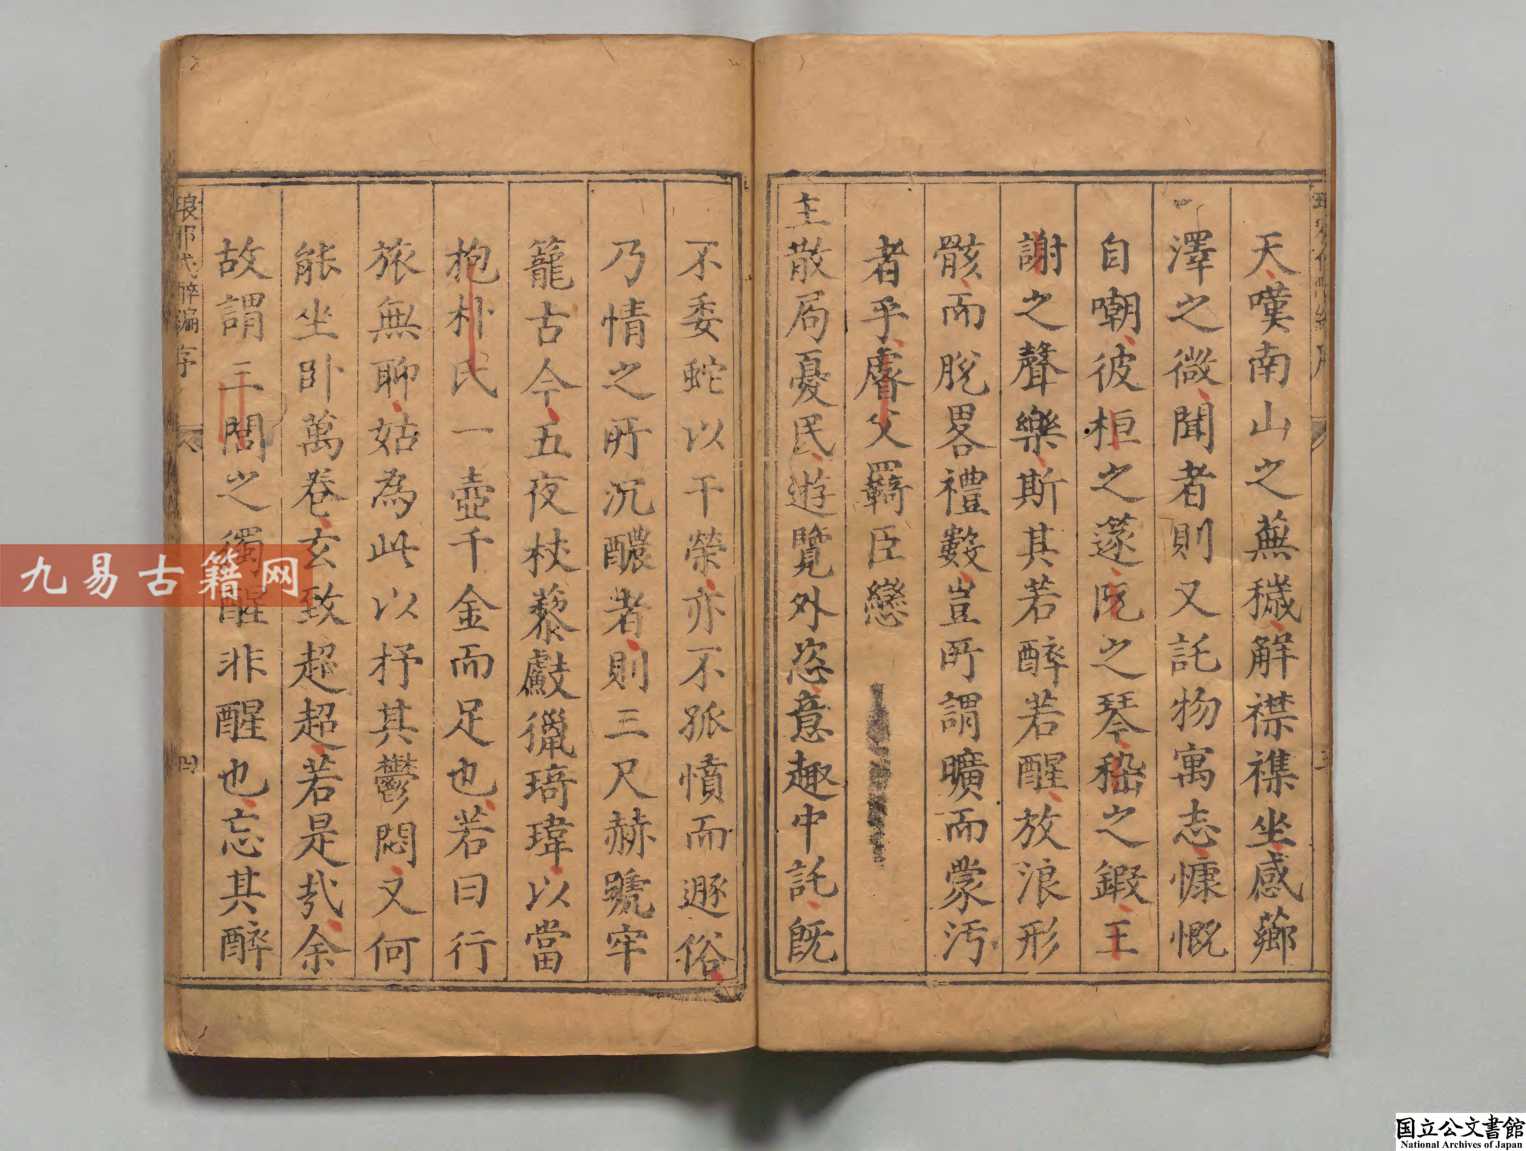 天嘆南山之蕪穢解襟襍坐感薌
澤之微聞者則又託物寓志慷慨
自嘲彼桓之蓬阮之琴嵇之鍛王
謝之聲樂斯其若醉若醒放浪形
骸而脫畧禮數豈所謂曠而蒙汚
者乎睿父羇臣戀
主散局憂民遊覽外恣意趣中託旣
不委蛇以干榮亦不孤憤而遯俗
乃情之所沉醲者則三尺赫號牢
籠古今五夜杖藜獻獵琦瑋以當
抱朴氏一壺千金而足也若曰行
旅無聊姑為此以抒其鬱悶又何
能坐卧萬卷玄致超超若是㢤余
故謂三閭之獨醒非醒也忘其醉
琅邪代醉編序
四
九易古籍网
国立公文書館
National Archives of Japan